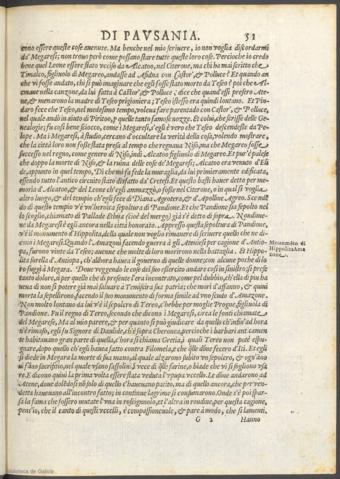 DI PAVSANIA. 51
uino essere queste cose auenute. Ma benche nel mio scriuere, io non voglia discordarmi
da' Megaresi; non trouo però come possano stare tutte queste loro cose. Percioche io credo
bene quel Leone essere stato vcciso da Alcatoo, nel Citerone, ma chi ha mai scritto che
Timalco, figliuolo di Megareo, andasse ad Afidna con Castor', & Polluce? Et quando an
che vi fosse andato, chi si può imaginare che egli fosse stato morto da Teseo? poi che Alc-
mane nella canzone, da lui fatta à Castor', & Polluce; dice che quand'essi presero Ate-
ne, & menarono la madre di Teseo prigioniera; Teseo istesso era quindi lontano. Et Pin-
daro fece che Teseo, nel medesimo, voleua far parentado con Castor', & Polluce,
nel quale andò in aiuto di Piritoo, à quelle tanto famose nozze. Et colui, che scrisse delle Ge-
nealogie; fu così bene sciocco, come i Megaresi, s'egli è vero che Teseo descendesse da Pe-
lope. Ma i Megaresi, à studio, cercano d'occultare la verità della cosa, volendo mostrare,
che la città loro non fosse stata presa al tempo che regnaua Niso, ma che Megareo fosse
successo nel regno, come genero di Niso, indi Alcatoo figliuolo di Megareo. Et pur'è palese
che doppo la morte di Niso, & la ruina delle cose de' Megaresi; Alcatoo era venuto d'Eli
de, appunto in quel tempo. Di che mi fa fede la muraglia, da lui primieramente edificata,
essendo tutto l'antico circuito stato disfatto da' Cretesi. Et questo basti hauer detto per me-
moria d'Alcatoo, & del Leone ch'egli ammazzò, ò fosse nel Citerone, ò in qual si voglia
altro luogo, & del tempio ch'egli fece da Diana, Agrotera, & d'Apolline Agreo. Scenden-
do di questo tempio v'è vn'heroica sepoltura di Pandione. Et che Pandione fia sepolto nel
lo scoglio, chiamato di Pallade Ethuia (cioè del mergo) già s'è detto di sopra. Nondime-
no da Megaresi è egli ancora nella città honorato. Appresso questa sepoltura di Pandione,
v'è il monumento d'Hippolita, della quale non voglio rimanere di scriuere quello che ne di-
cono i Megaresi. Quando l'Amazoni facendo guerra à gli Ateniesi per cagione d'Antio-
pa, furono vinte da Teseo; auenne che molte di loro morirono nella battaglia. Et che Hippo-
lita sorella d'Antiopa, ch'allhora haueua il gouerno di quelle donne; con alcune poche di lo
ro fuggì à Megara. Doue veggendo le cose del suo essercito andare così in sinistro; si prese
tanto dolore, sì per quello che di presente l'era incontrato, come pel dubbio, ch'ella di più ha
ueua di non si potere già mai saluare à Temiscira sua patria; che morì d'affanno, & quiui
morta la sepellirono, facendo il suo monumento di forma simile ad vno scudo d'Amazone.
Non molto lontano da lui v'è il sepolcro di Tereo, c'hebbe per moglie Progne, figliuola di
Pandione. Fu il regno di Tereo, secondo che dicono i Megaresi, circa le fonti chiamate
del Megarese, Ma al mio parere, & per quanto si può giudicare da quello che infin' ad hora
v'è rimaso, egli fu Signore di Daulide, ch'è sopra Cheronea, percioche i barbari anticamen
te habitauano gran parte di quella, c'hora si chiama Grecia; à quali Tereo non potè espu-
gnare, dopo quello ch'egli haueua fatto contra Filomela, & che le donne fecero d'Iti. Et egli
si diede in Megara la morte di sua mano, al quale alzarono subito vn sepolcro, & ogn'anno
vi fanno sacrificio, nel quale vsano sassolini, in vece di quelle farine, ò biade che vi si sogliono vsa
re. Et dicono quiui la prima volta essere stata veduta l'vpupa vccello. Le donne andarono ad
Atene, doue dolendosi non solo di quello c'haueuano patito, ma di quello ancora, che per ven
detta haueuano all'incontro fatto; in continue lagrime si consumarono. Onde s'è poi spar-
sa la fama che fossero mutate l'vna in rossignuolo, et l'altra in rondine, per questa cagione,
penso io, che il canto di questi vccelli, è compassioneuole, & pare à modo, che si lamenti.
G 2 Hanno
Monumento di
Hippolita Ama
zone.
Biblioteca de Galicia